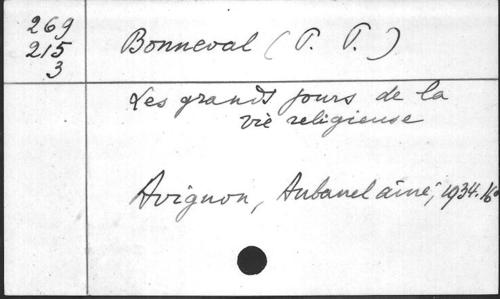 269
215
3
Bonneval (P. P.)
Les grands jours de la
vie religieuse
Avignon, Aubanel aîné, 1934. 16°